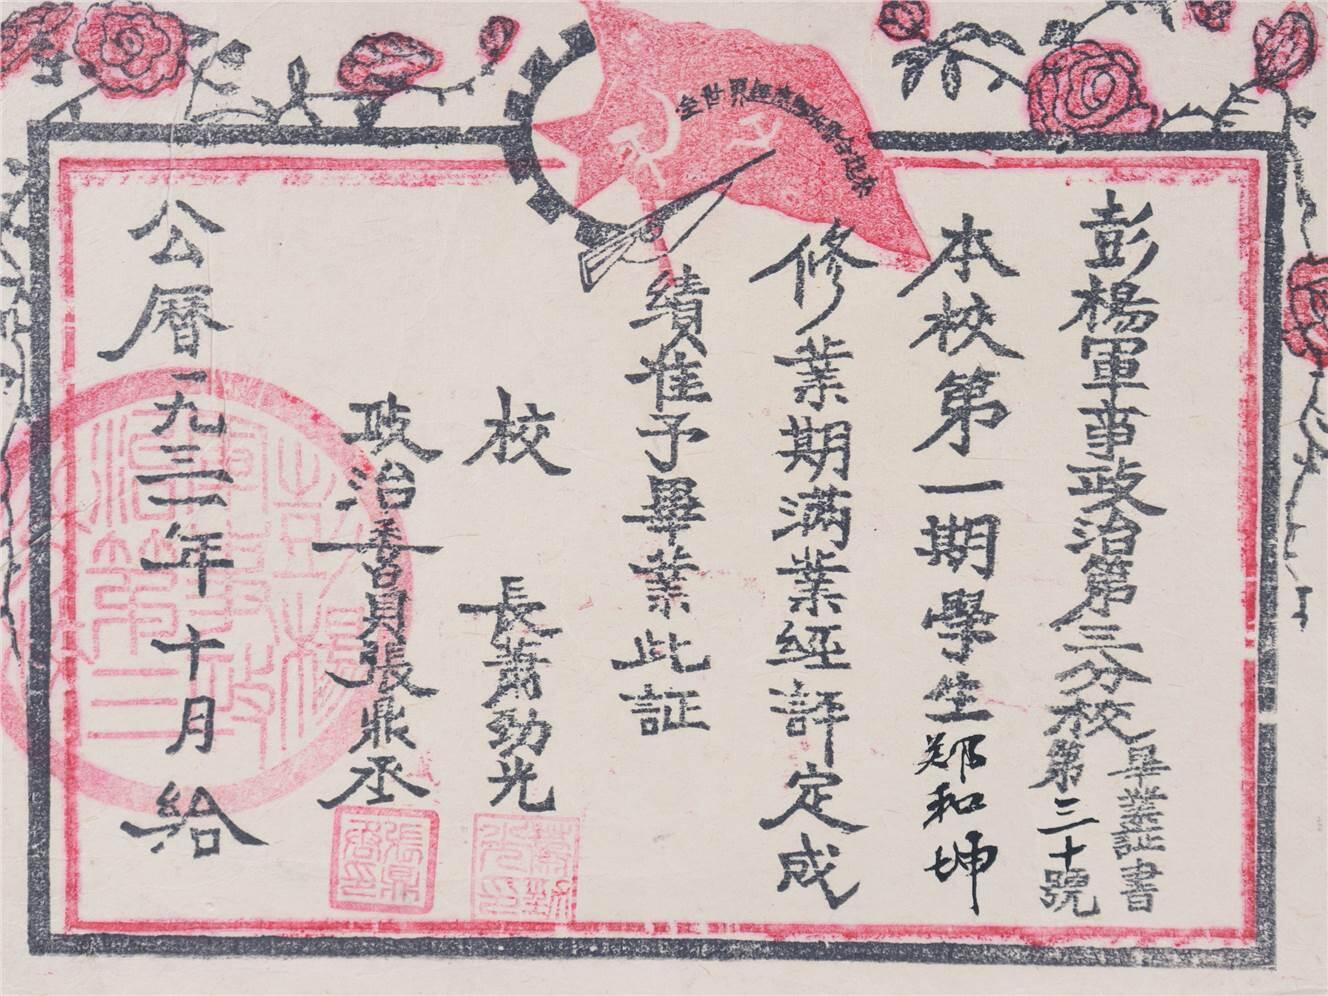 全世界無產階級聯合起來
彭楊軍事政治第三分校
畢業証書
第三十號
本校第一期學生郑和坤
修業期滿業經評定成
績准予畢業此証
校長蕭勁光
政治委員張鼎丞
公曆一九三一年十月給
蕭勁光印
張鼎丞印